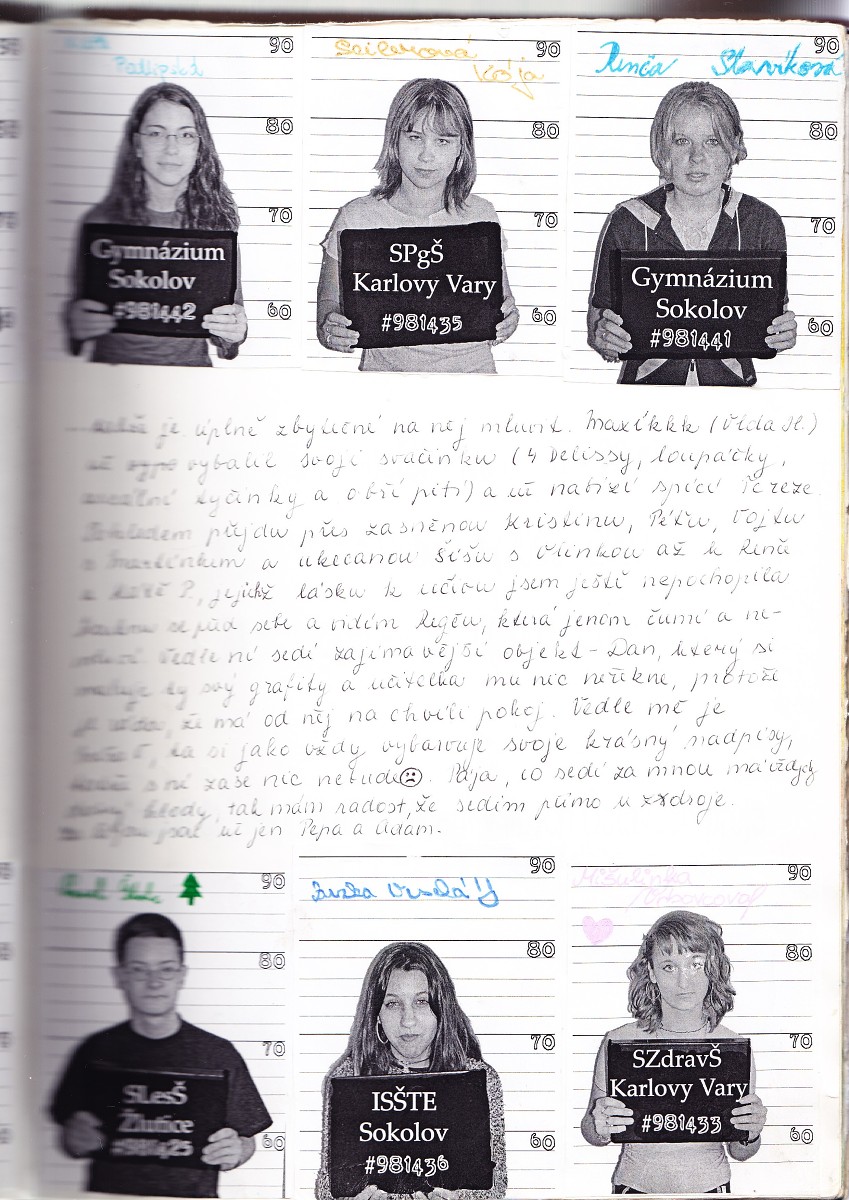 90
80
70
60
Gymnázium
Sokolov
#981442
Seilerová
Kája
90
80
70
60
SPgŠ
Karlovy Vary
#981435
Renča Slavíková
90
80
70
60
Gymnázium
Sokolov
#981441
je úplně zbytečné na něj mluvit. Maxíkkk (Vláďa H.)
už vybalil svoji svačinku (4 Delissy, loupáčky,
tyčinky a obří pití) a už nabízí spící Tereze.
Pohledem přejdu přes zasněnou Kristinu, Péťu, Vojtu
s Martínkem a ukecanou Šíšu s Vlinkou až k Renč
P., jejichž lásku k učivu jsem ještě nepochopila
před sebe a vidím která jenom čumí a ne-
Vedle ní sedí zajímavější objekt - Dan, který si
maluje ty svý grafity a učitelka mu nic neřekne, protože
je ráda, že má od něj na chvíli pokoj. Vedle mě je
ta si jako vždy vybarvuje svoje krásný nadpisy,
s ní zase nic nebude ☹. Pája, co sedí za mnou má vždycky
tak mám radost, že sedím přímo u zdroje.
jsou už jen Pepa a Adam.
90
80
70
60
SLesŠ
Žlutice
#981425
Zuzka
90
80
70
60
ISŠTE
Sokolov
#981436
Mišulinka
90
80
70
60
SZdravŠ
Karlovy Vary
#981433